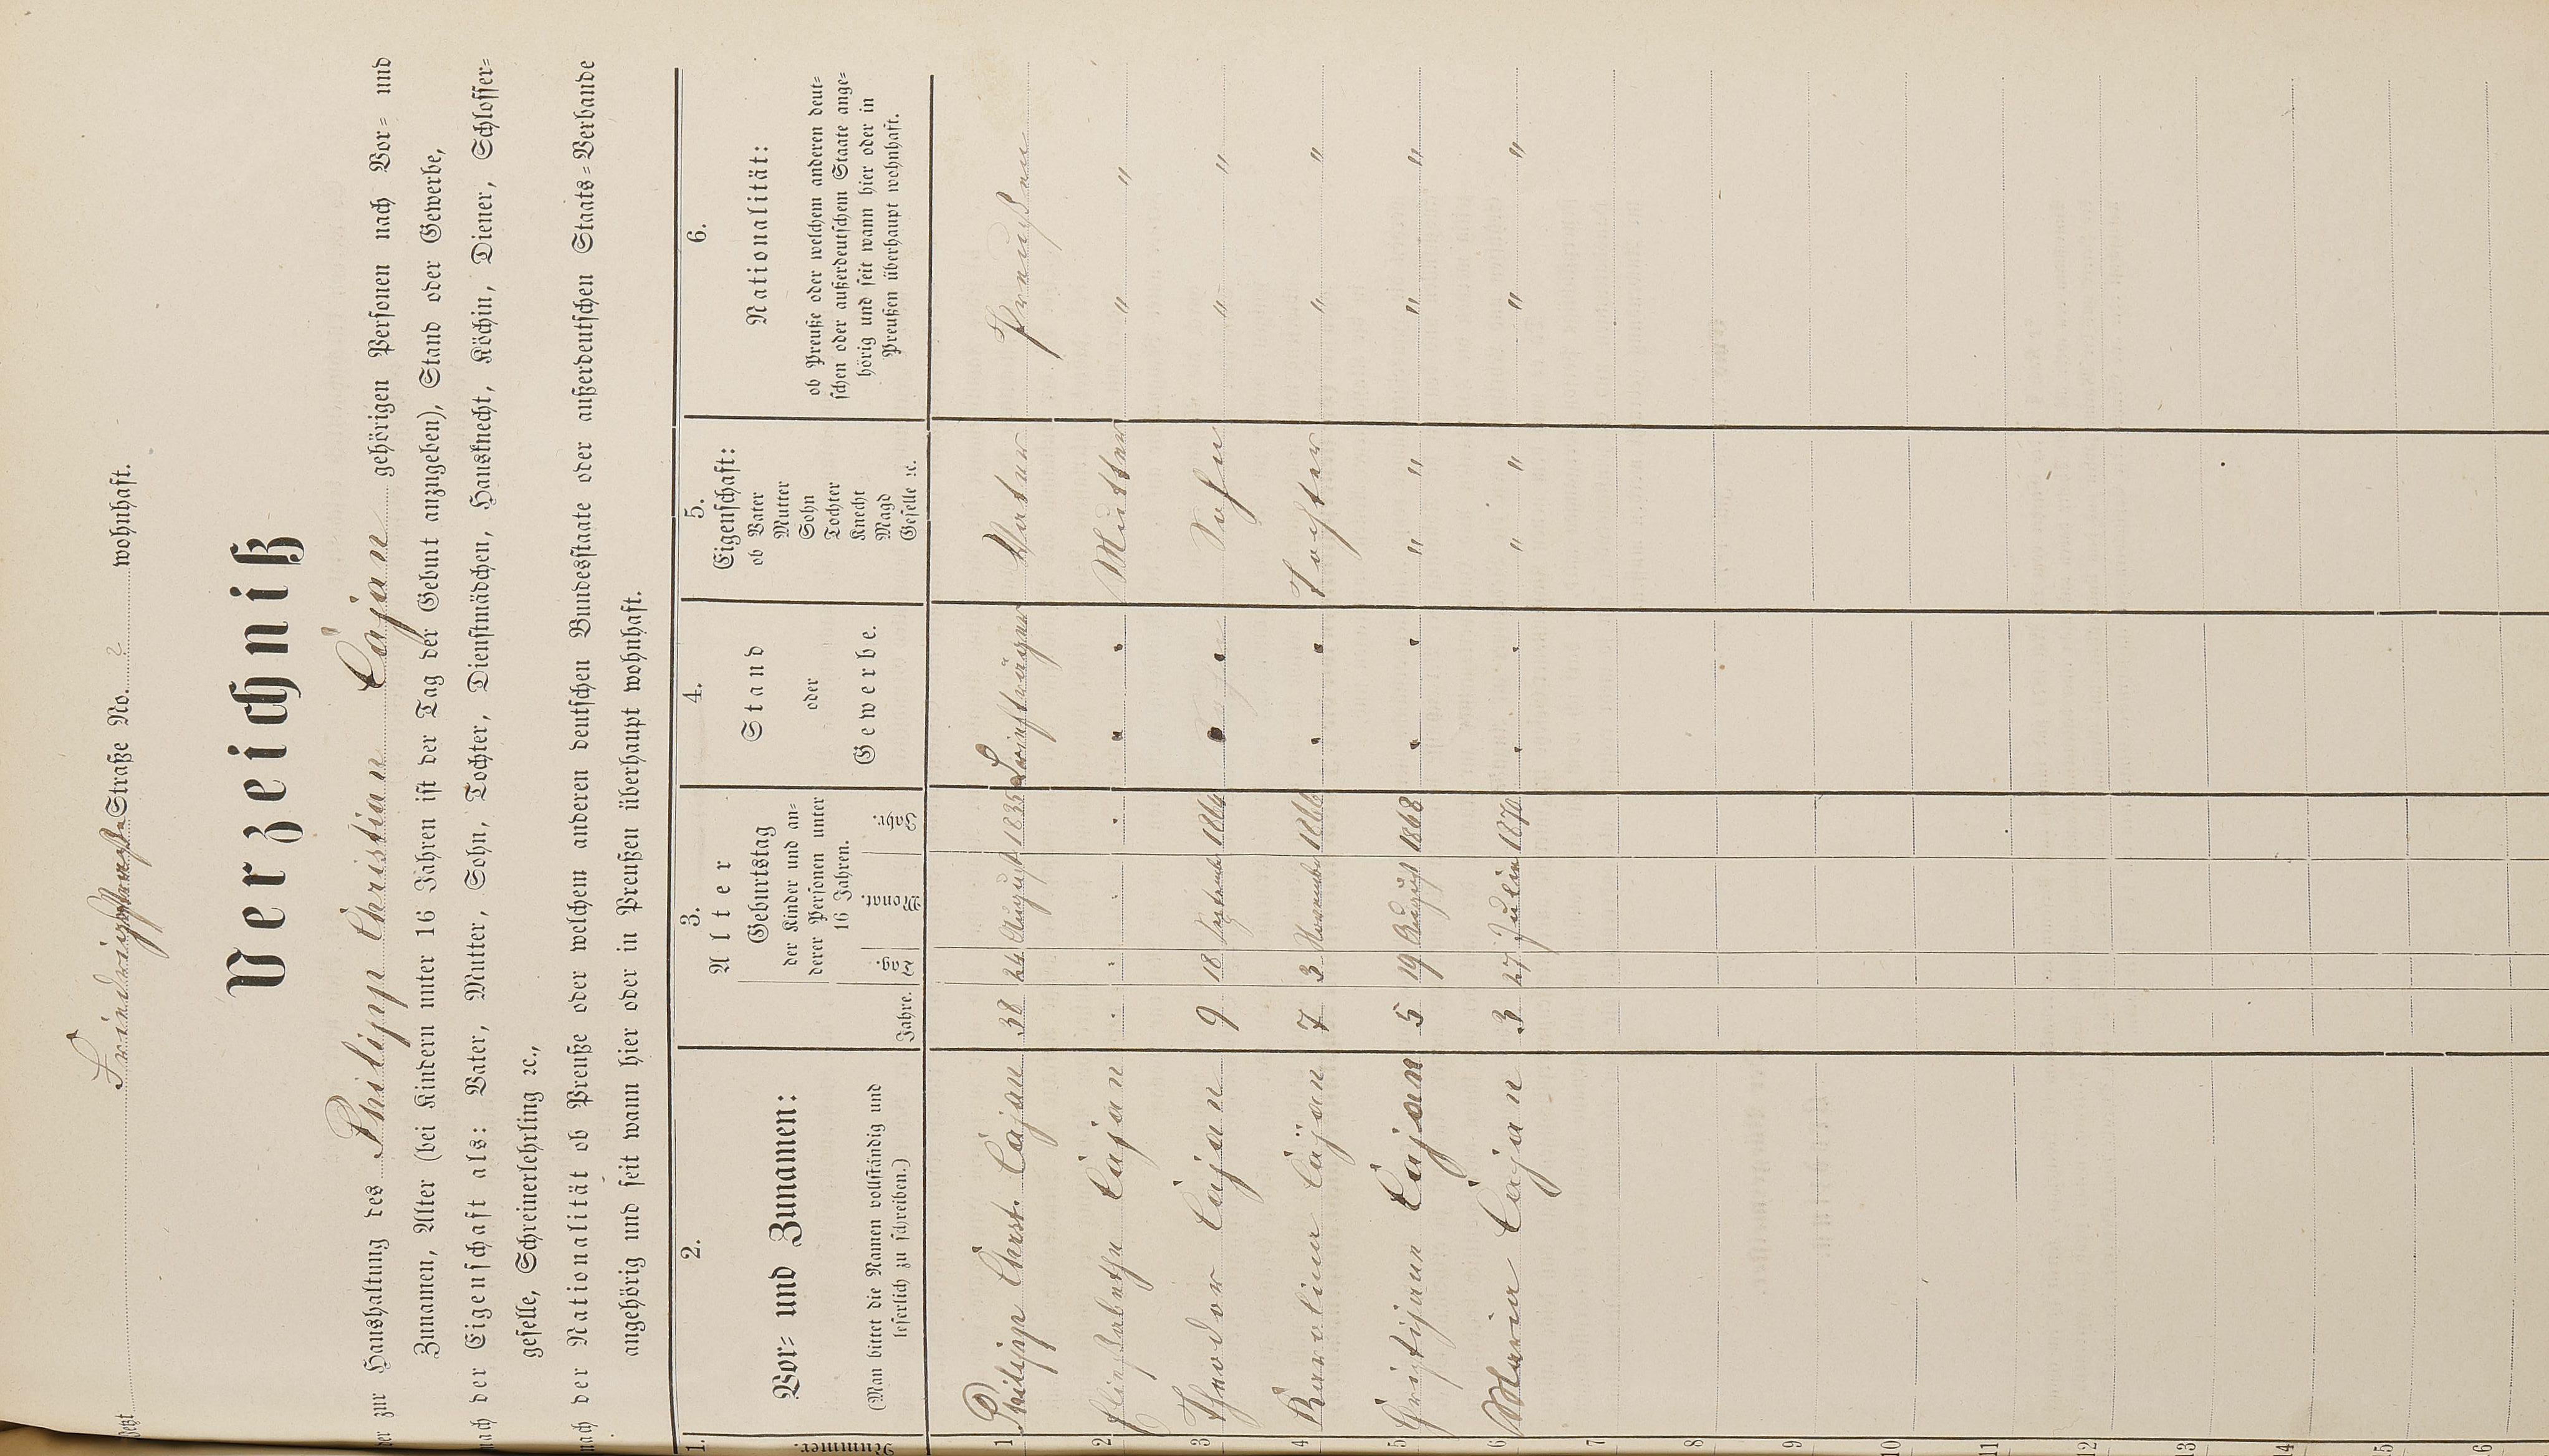 Jetzt Friedrichstraße Straße No. 2 wohnhaft.
Verzeichniß
der zur Haushaltung des Philipp Christian Cájan gehörigen Personen nach Vor= und
Zunamen, Alter (bei Kindern unter 16 Jahren ist der Tag der Geburt anzugeben), Stand oder Gewerbe,
nach der Eigenschaft als: Vater, Mutter, Sohn, Tochter, Dienstmädchen, Hausknecht, Köchin, Diener, Schlosser=
geselle, Schreinerlehrling ꝛc.,
nach der Nationalität ob Preuße oder welchem anderen deutschen Bundesstaate oder außerdeutschen Staats=Verbande
angehörig und seit wann hier oder in Preußen überhaupt wohnhaft.
1. 2. 3. 4. 5. 6.
Nummer. Vor= und Zunamen: (Man bittet die Namen vollständig und leserlich zu schreiben.)
Alter Geburtstag der Kinder und anderer Personen unter 16 Jahren. Jahre. Tag Monat. Jahr.
Stand oder Gewerbe.
Eigenschaft: ob Vater Mutter Sohn Tochter Knecht Magd Geselle ꝛc.
Nationalität: ob Preuße oder welchem anderen deut= schen oder außerdeutschem Staate ange= hörig und seit wann hier oder in Preußen überhaupt wohnhaft.
1 Philipp Christ. Cájan 38 24 August 1835 Vater Preußen
2 Cájan . . . . " " Mutter " "
3 Theodor Cájan 9 18 September 1864 " " Sohn " "
4 Karoline Cájan 7 3 November 1866 " " Tochter " "
5 Cájan 5 19 August 1868 " " " " " "
6 Maria Cájan 3 27 Julin 1870 " " " " " "
7
8
9
10
11
12
13
14
15
16